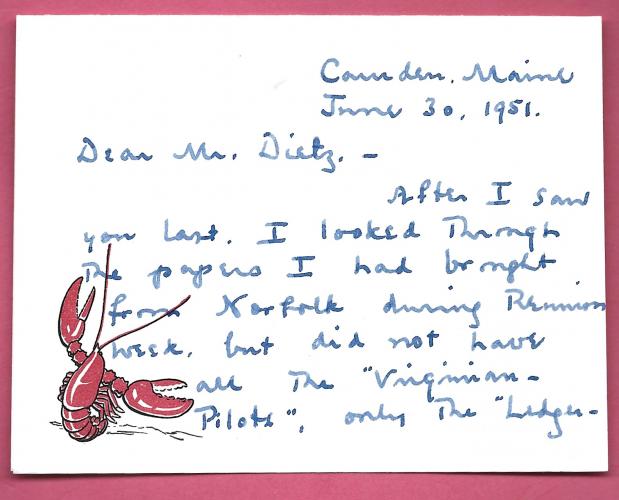 Camden, Maine
June 30, 1951.
Dear Mr. Dietz, –
After I saw
you last, I looked through
the papers I had brought
from Norfolk during Reunion
week, but did not have
all the "Virginian-
Pilots", only the "Ledger-